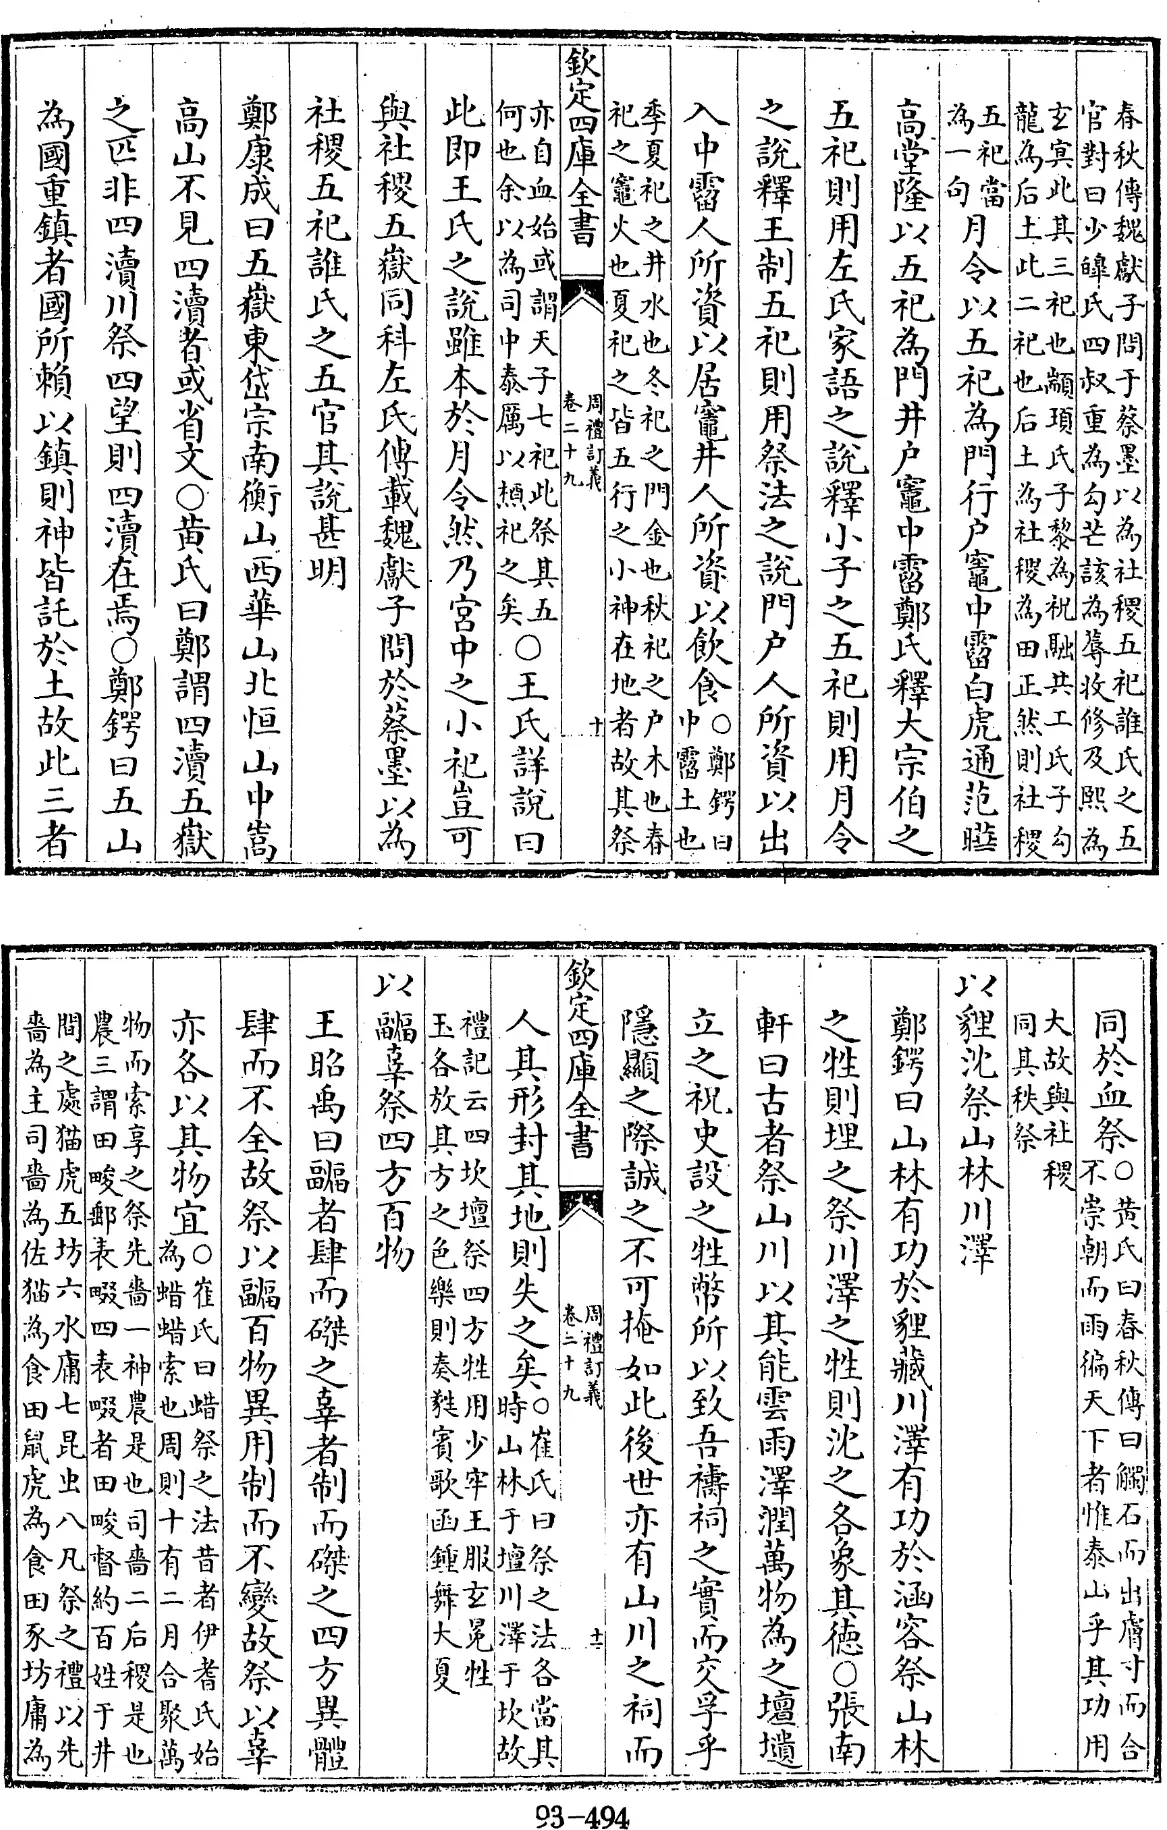 春秋傳魏獻子問于蔡墨以為社稷五祀誰氏之五
官對曰少皡氏四叔重為勾芒該為蓐收修及熙為
玄冥此其三祀也顓頊氏子黎為祝融共工氏子勾
龍為后土此二祀也后土為社稷為田正然則社稷
五祀當
為一句
月令以五祀為門行户竈中霤白虎通范曄
高堂隆以五祀為門井户竈中霤鄭氏釋大宗伯之
五祀則用左氏家語之說釋小子之五祀則用月令
之說釋王制五祀則用祭法之說門户人所資以出
入中霤人所資以居竈井人所資以飲食○鄭鍔曰
中霤土也
季夏祀之井水也冬祀之門金也秋祀之户木也春
祀之竈火也夏祀之皆五行之小神在地者故其祭
欽定四庫全書
周禮訂義
卷二十九
十
亦自血始或謂天子七祀此祭其五
何也余以為司中泰厲以槱祀之矣
○王氏詳說曰
此即王氏之說雖本於月令然乃宮中之小祀豈可
與社稷五嶽同科左氏傳載魏獻子問於蔡墨以為
社稷五祀誰氏之五官其說甚明
鄭康成曰五嶽東岱宗南衡山西華山北恒山中嵩
高山不見四瀆者或省文○黄氏曰鄭謂四瀆五嶽
之匹非四瀆川祭四望則四瀆在焉○鄭鍔曰五山
為國重鎮者國所賴以鎮則神皆託於土故此三者
同於血祭○黄氏曰春秋傳曰觸石而出膚寸而合
不崇朝而雨徧天下者惟泰山乎其功用
大故與社稷
同其秩祭
以貍沈祭山林川澤
鄭鍔曰山林有功於貍藏川澤有功於涵容祭山林
之牲則埋之祭川澤之牲則沈之各象其徳○張南
軒曰古者祭山川以其能雲雨澤潤萬物為之壇壝
立之祝史設之牲幣所以致吾禱祠之實而交孚乎
隱顯之際誠之不可掩如此後世亦有山川之祠而
欽定四庫全書
周禮訂義
卷二十九
十一
人其形封其地則失之矣○崔氏曰祭之法各當其
時山林于壇川澤于坎故
禮記云四坎壇祭四方牲用少牢王服玄冕牲
玉各放其方之色樂則奏蕤賓歌函鍾舞大夏
以疈辜祭四方百物
王昭禹曰疈者肆而磔之辜者制而磔之四方異體
肆而不全故祭以疈百物異用制而不變故祭以辜
亦各以其物宜○崔氏曰蜡祭之法昔者伊耆氏始
為蜡蜡索也周則十有二月合聚萬
物而索享之祭先嗇一神農是也司嗇二后稷是也
農三謂田畯郵表畷四表畷者田畯督約百姓于井
間之處猫虎五坊六水庸七昆虫八凡祭之禮以先
嗇為主司嗇為佐猫為食田鼠虎為食田豕坊庸為
93-494